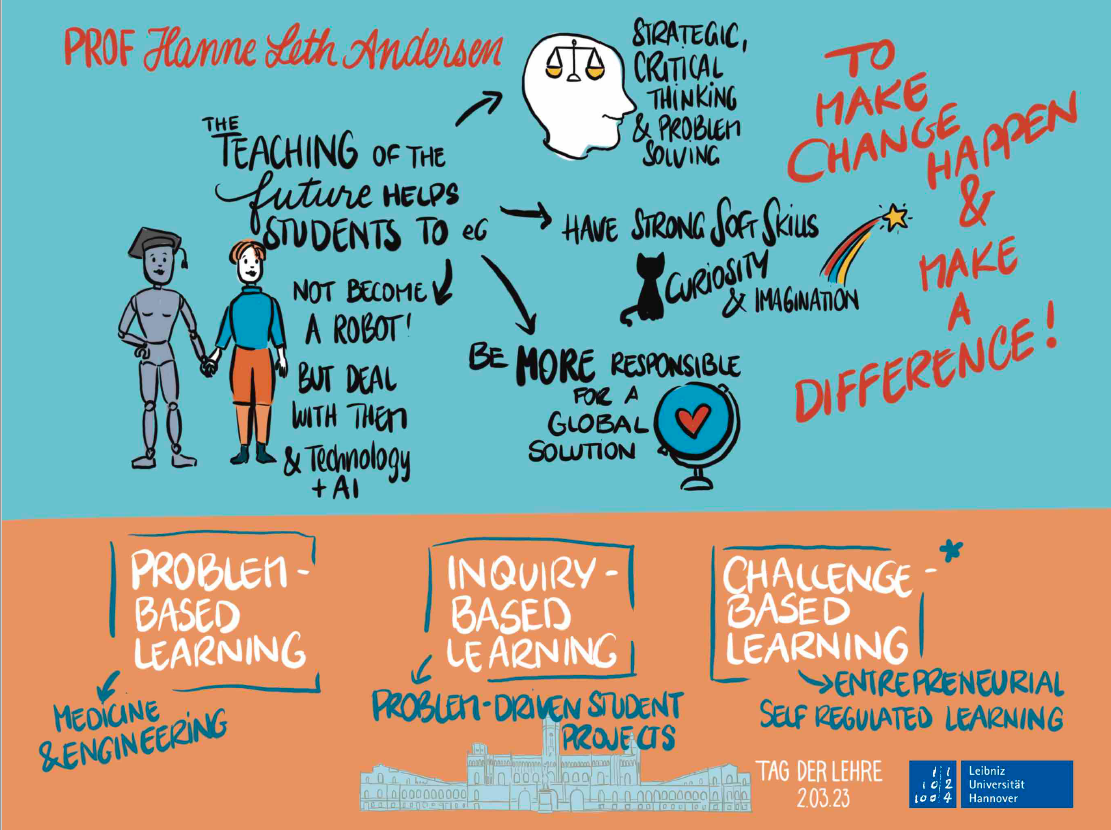 PROF Hanne Leth Andersen
THE
TEACHING OF THE
future HELPS
STUDENTS TO eG
STRATEGIC,
CRITICAL
THINKING
& PROBLEM
SOLVING
HAVE STRONG SOFT SKILLS
CURIOSITY
& IMAGINATION
NOT BECOME
A ROBOT!
BUT DEAL
WITH THEM
& Technology
+ AI
BE MORE RESPONSIBLE
FOR A
GLOBAL
SOLUTION
TO
MAKE
CHANGE
HAPPEN
&
MAKE
A
DIFFERENCE!
PROBLEM-
BASED
LEARNING
MEDICINE
& ENGINEERING
INQUIRY-
BASED
LEARNING
PROBLEM-DRIVEN STUDENT
PROJECTS
CHALLENGE-*
BASED
LEARNING
ENTREPRENEURIAL
SELF REGULATED LEARNING
TAG DER LEHRE
2.03.23
1 1
1 0 2
1 0 0 4
Leibniz
Universität
Hannover